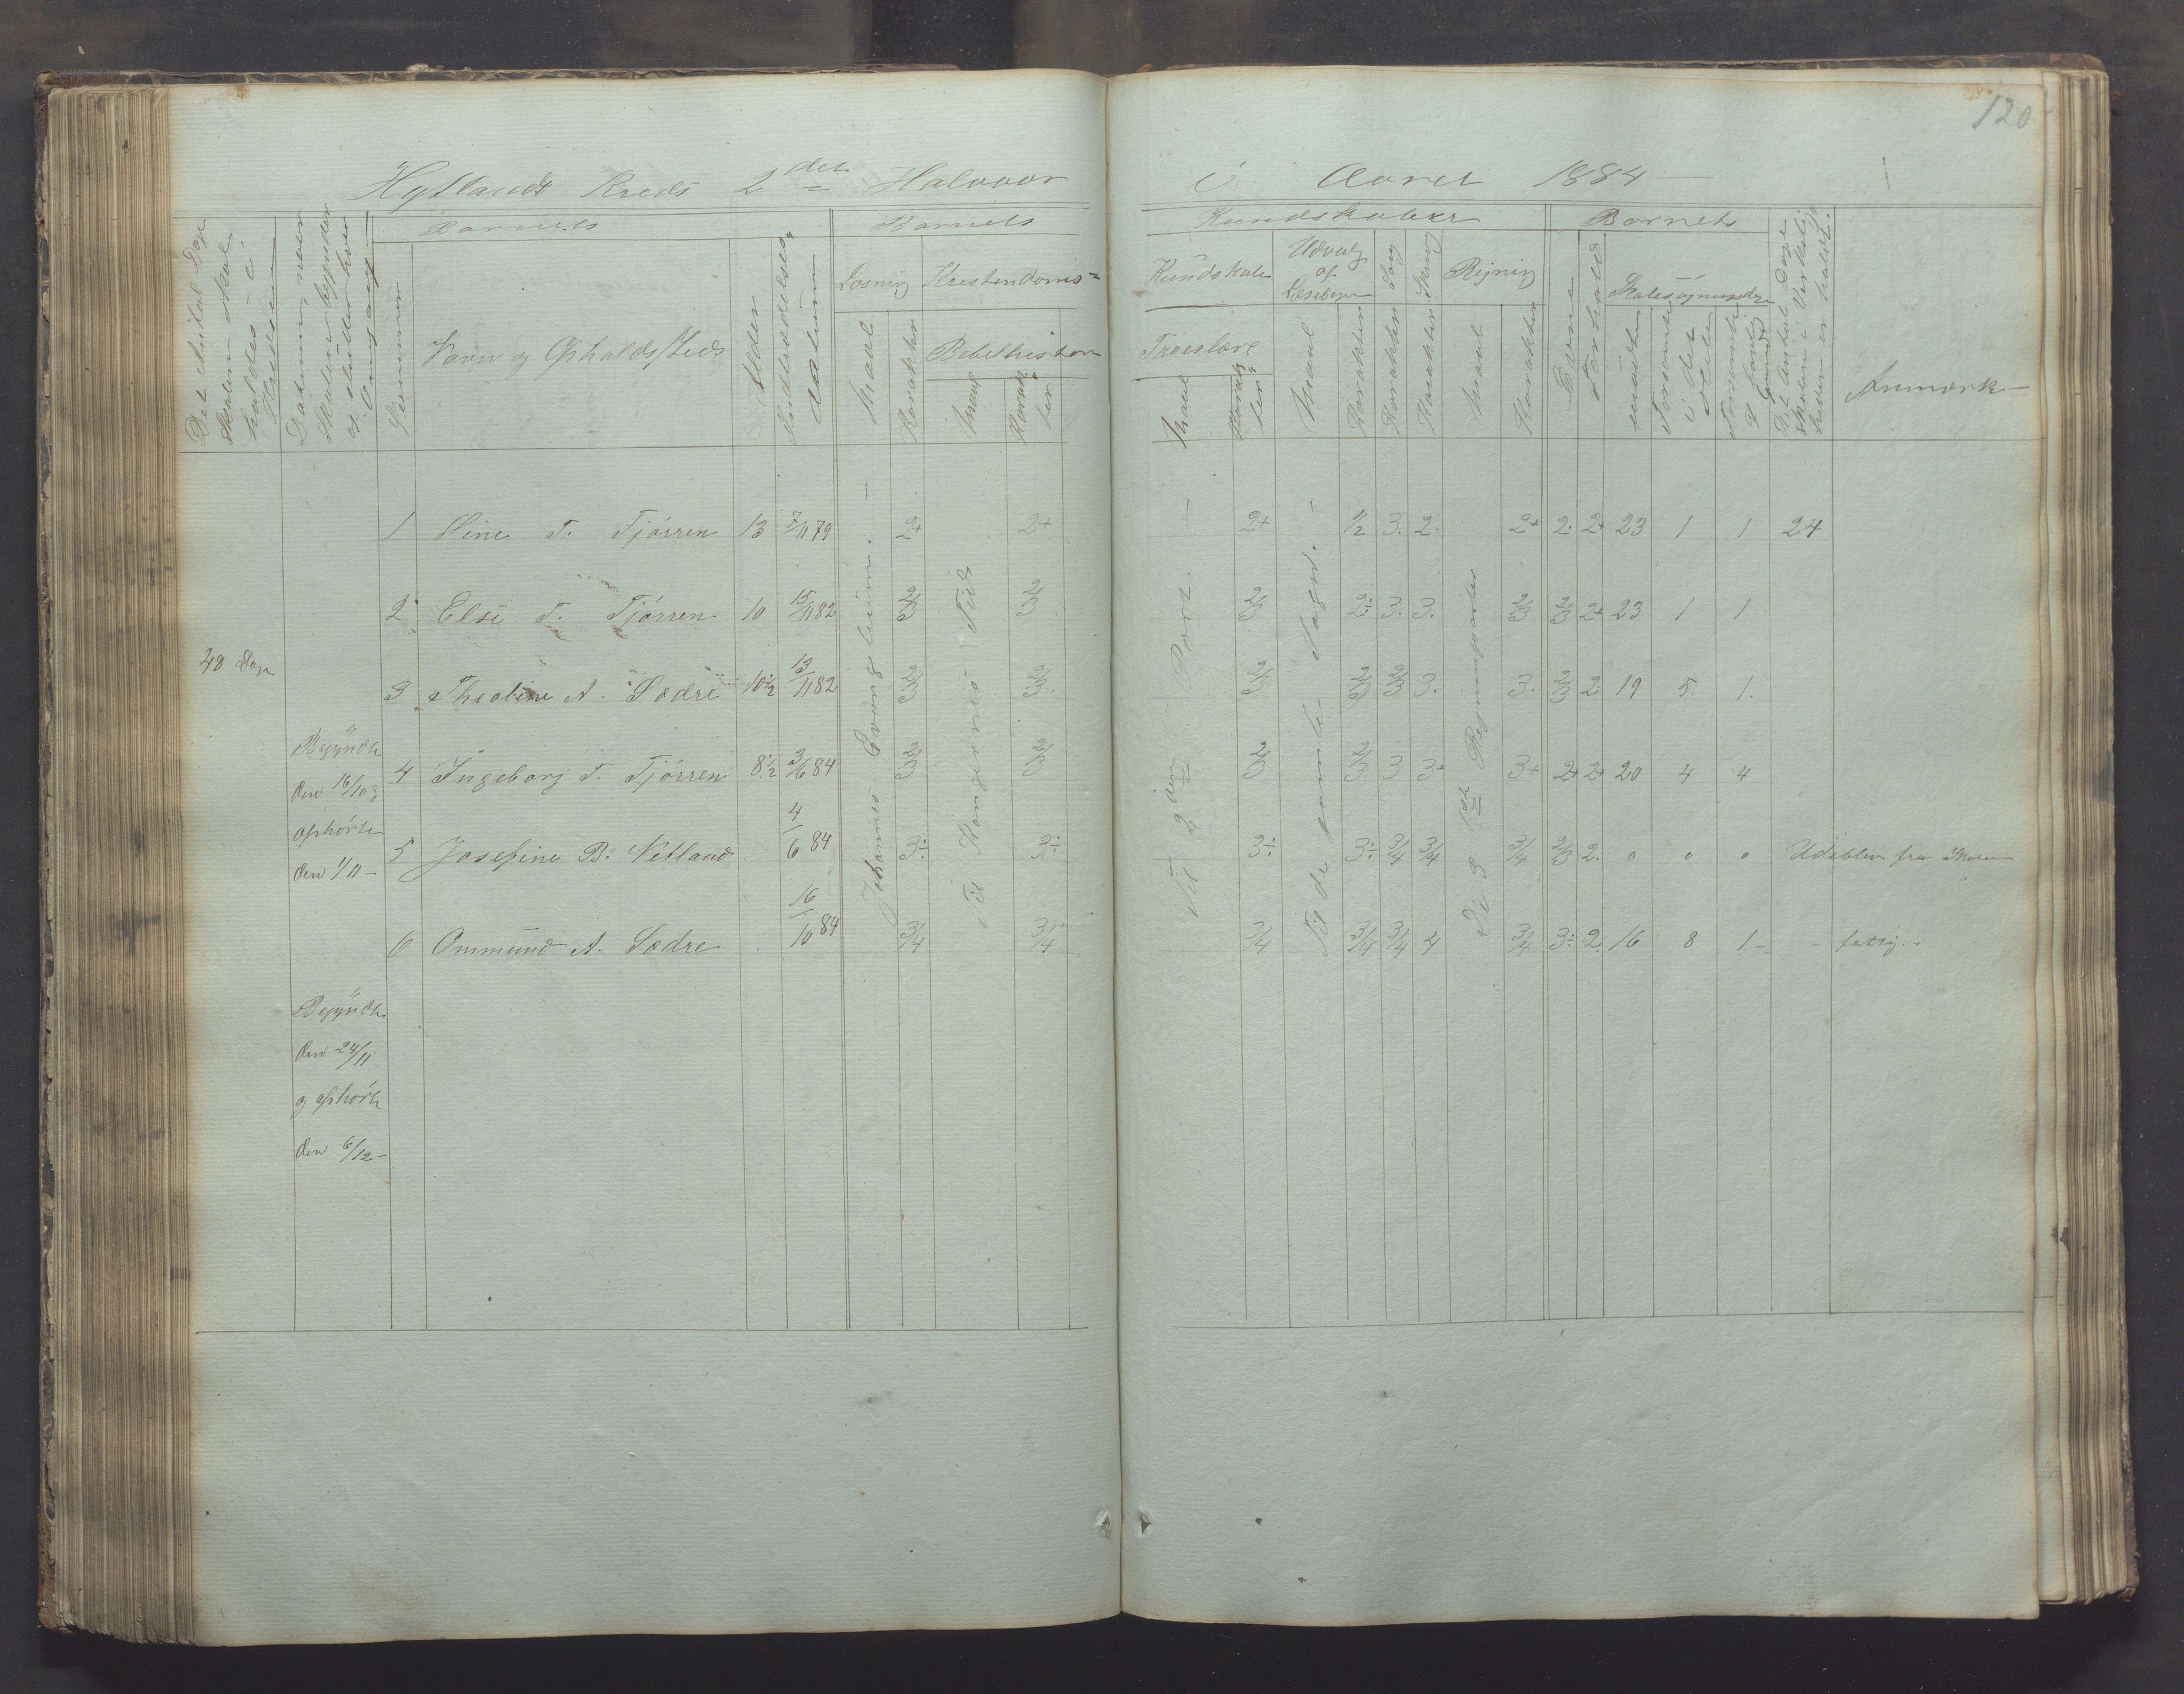 120
Hytlands Kreds 2det Halvaar i Aaret 1884 —
Det Antal Dage Skolen skal holdes i Kredsen
Datum, naar Skolen begynder og slutter hver Omgang
Nummer
Barnets
Navn og Opholdssted
Alder
Indtrædelses datum
Barnets
Læsning
Maal
Karakter
Kristendoms-
Bibelhistorie
Maal
Karakter
Kundskaber
Kundskab
Troeslære
Maal
Karakter
Udvalg af Læsebogen
Maal
Karakter
Sang
Karakter
Skriv
Karakter
Regning
Maal
Karakter
Barnets
Evne
Forhold
Skolesøgningsdage
mødte
Forsømte i det Hele
Forsømte af lovlig Grund
Det Antal Dage Skolen i Virkelig heden er holdt.
Anmærk-
48 Dage
Begyndte
den 16/10 og
ophørte
den 1/11 —
Begyndte
den 24/11
og ophørte
den 6/12 —
Johannes Evangelium. —
Til Kongernes Tid
Til 2den Part. —
Til de gamle Sagn. —
De 4 Regningsarter
1 Stine T. Tjørren 13 7/11 79 2+ 2+ 2+ 1/2 3. 2. 2+ 2. 2+ 23 1 1 24
2 Else T. Tjørren 10 15/11 82 2/3 2/3 2/3 2÷ 3. 3. 2/3 2/3 2+ 23 1 1
3 Theoline A. Sædre 10½ 13/11 82 2/3 2/3. 2/3 2/3 2/3 3. 3. 2/3 2 19 5 1.
4 Ingeborg T. Tjørren 8½ 3/6 84 2/3 2/3 2/3 2/3 3 3+ 3+ 2+ 2+ 20 4 4
5 Josefine B. Vetland 4/6 84 3÷ 3÷ 3÷ 3÷ 3/4 3/4 3/4 2/3 2. 0 0 0 Udeblev fra Skolen
6 Ommund A. Sædre 16/10 84 3/4 3/4 3/4 3/4 3/4 4 3/4 3÷ 2 16 8 1 — — fattig. —